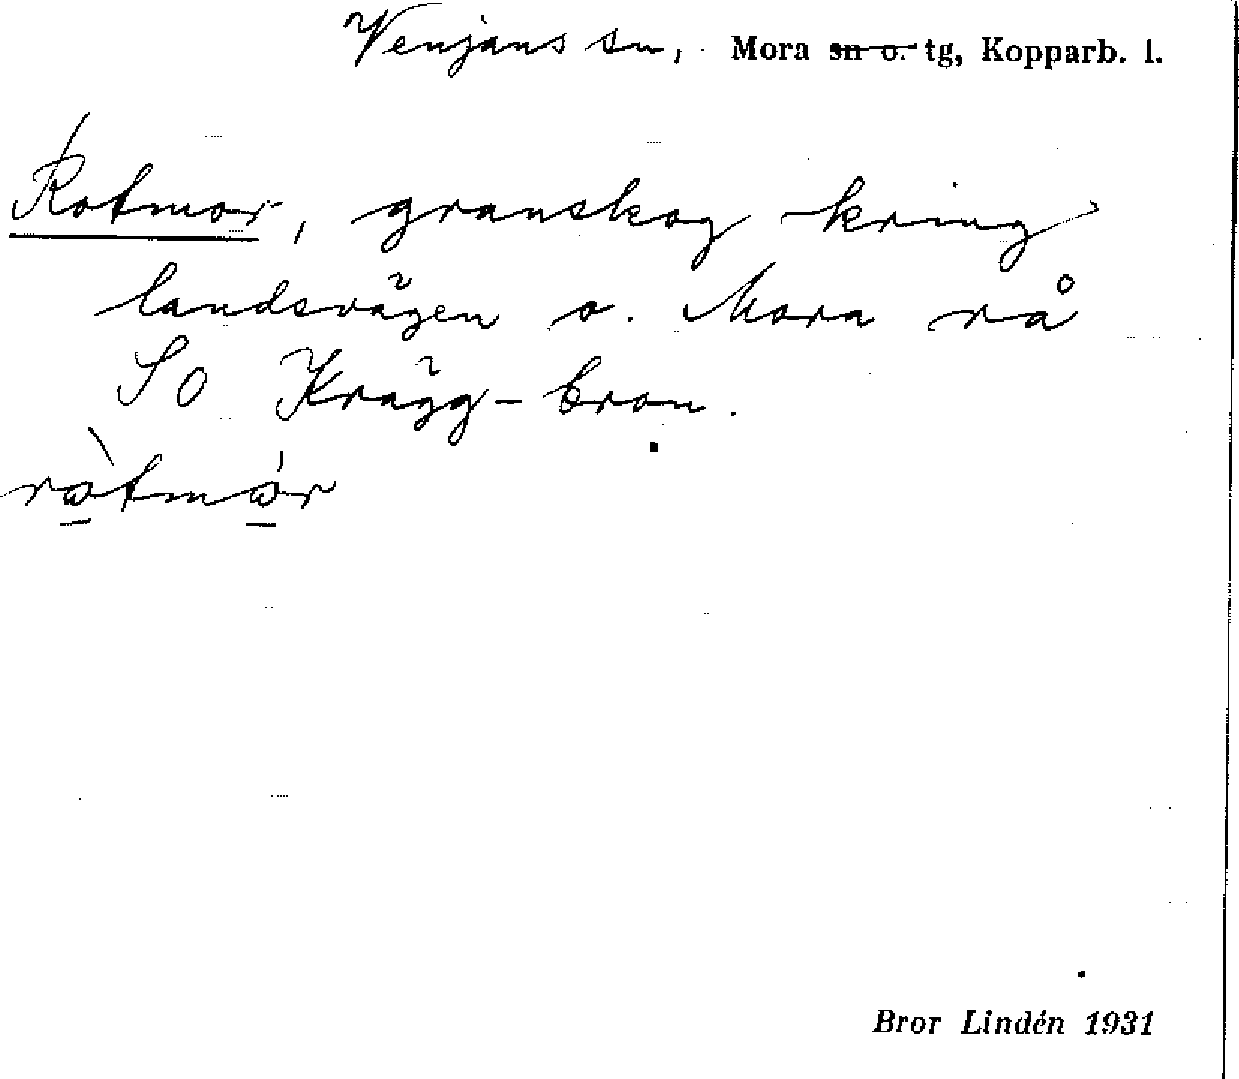 Venjans sn, Mora sn o. tg, Kopparb. l.
Rotmor, granskog kring
landsvägen o. Mora rå
SO Krägg-bron.
ròtmór
Bror Lindén 1931